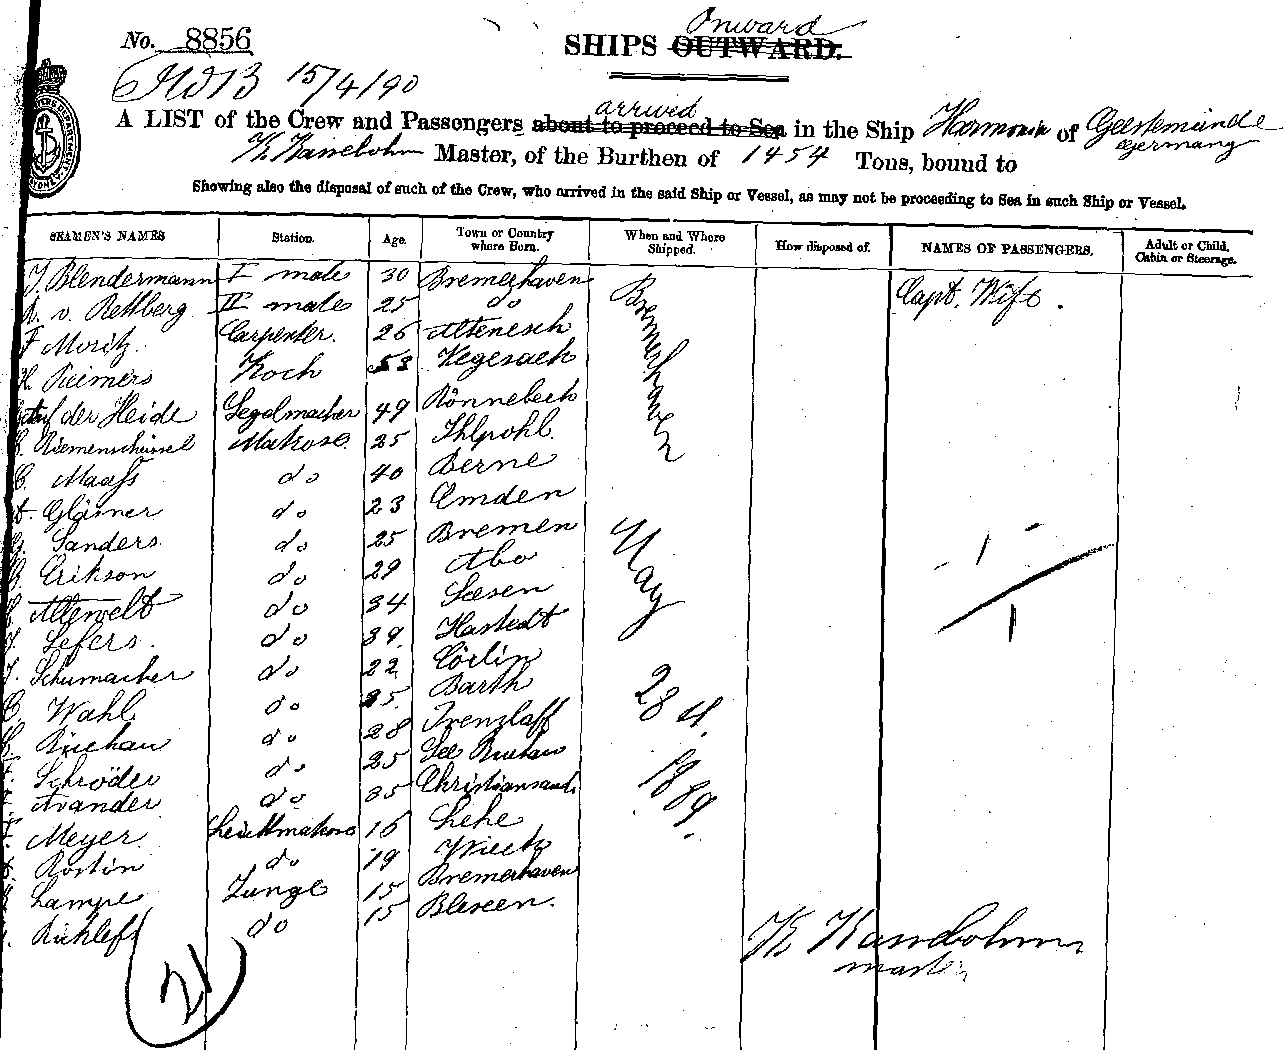 Onward
No. 8856 SHIPS OUTWARD.
15/4/90
arrived
A LIST of the Crew and Passengers about to proceed to Sea in the Ship Harmonia of Geestemünde
Germany
Master, of the Burthen of 1454 Tons, bound to
Showing also the disposal of such of the Crew, who arrived in the said Ship or Vessel, as may not be proceeding to Sea in such Ship or Vessel.
SEAMEN'S NAMES Station. Age. Town or Country where Born. When and Where Shipped. How disposed of. NAMES OF PASSENGERS. Adult or Child, Cabin or Steerage.
J. Blendermann I mate 30 Bremerhaven Bremerhaven May 28th 1889. Capt. Wife.
v. Rettberg II mate 25 do
F Moritz. Carpenter. 26 Altenesch
H. Reimers Koch 53 Vegesack
auf der Heide Segelmacher 49 Rönnebeck
Riemenschüssel Matrose. 25 Ihlpohl.
Maass do 40 Berne
Gläsner do 23 Emden
Sanders. do 25 Bremen
Erikson do 29 Abo
Altewelt do 34 Seesen
Sefers. do 39. Hastedt
Schumacher do 22 Cörlin
Wahl do 25. Barth
Büchau do 28 Prenzlaff
Schröder do 25 See
Avander do 35 Christiansand.
Meyer Leichtmatrose 16 Lehe
Rostin do 19 Wieck
Lampe Junge 15 Bremerhaven
Richlefs do 15 Blexen.
1
1
21
K Kassebohm
master